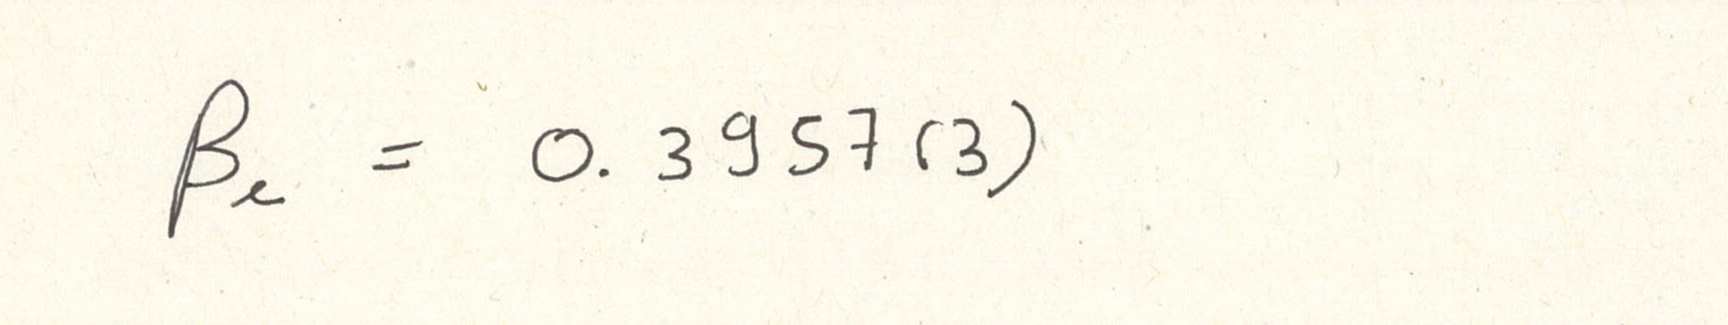 βₑ = 0.3957(3)